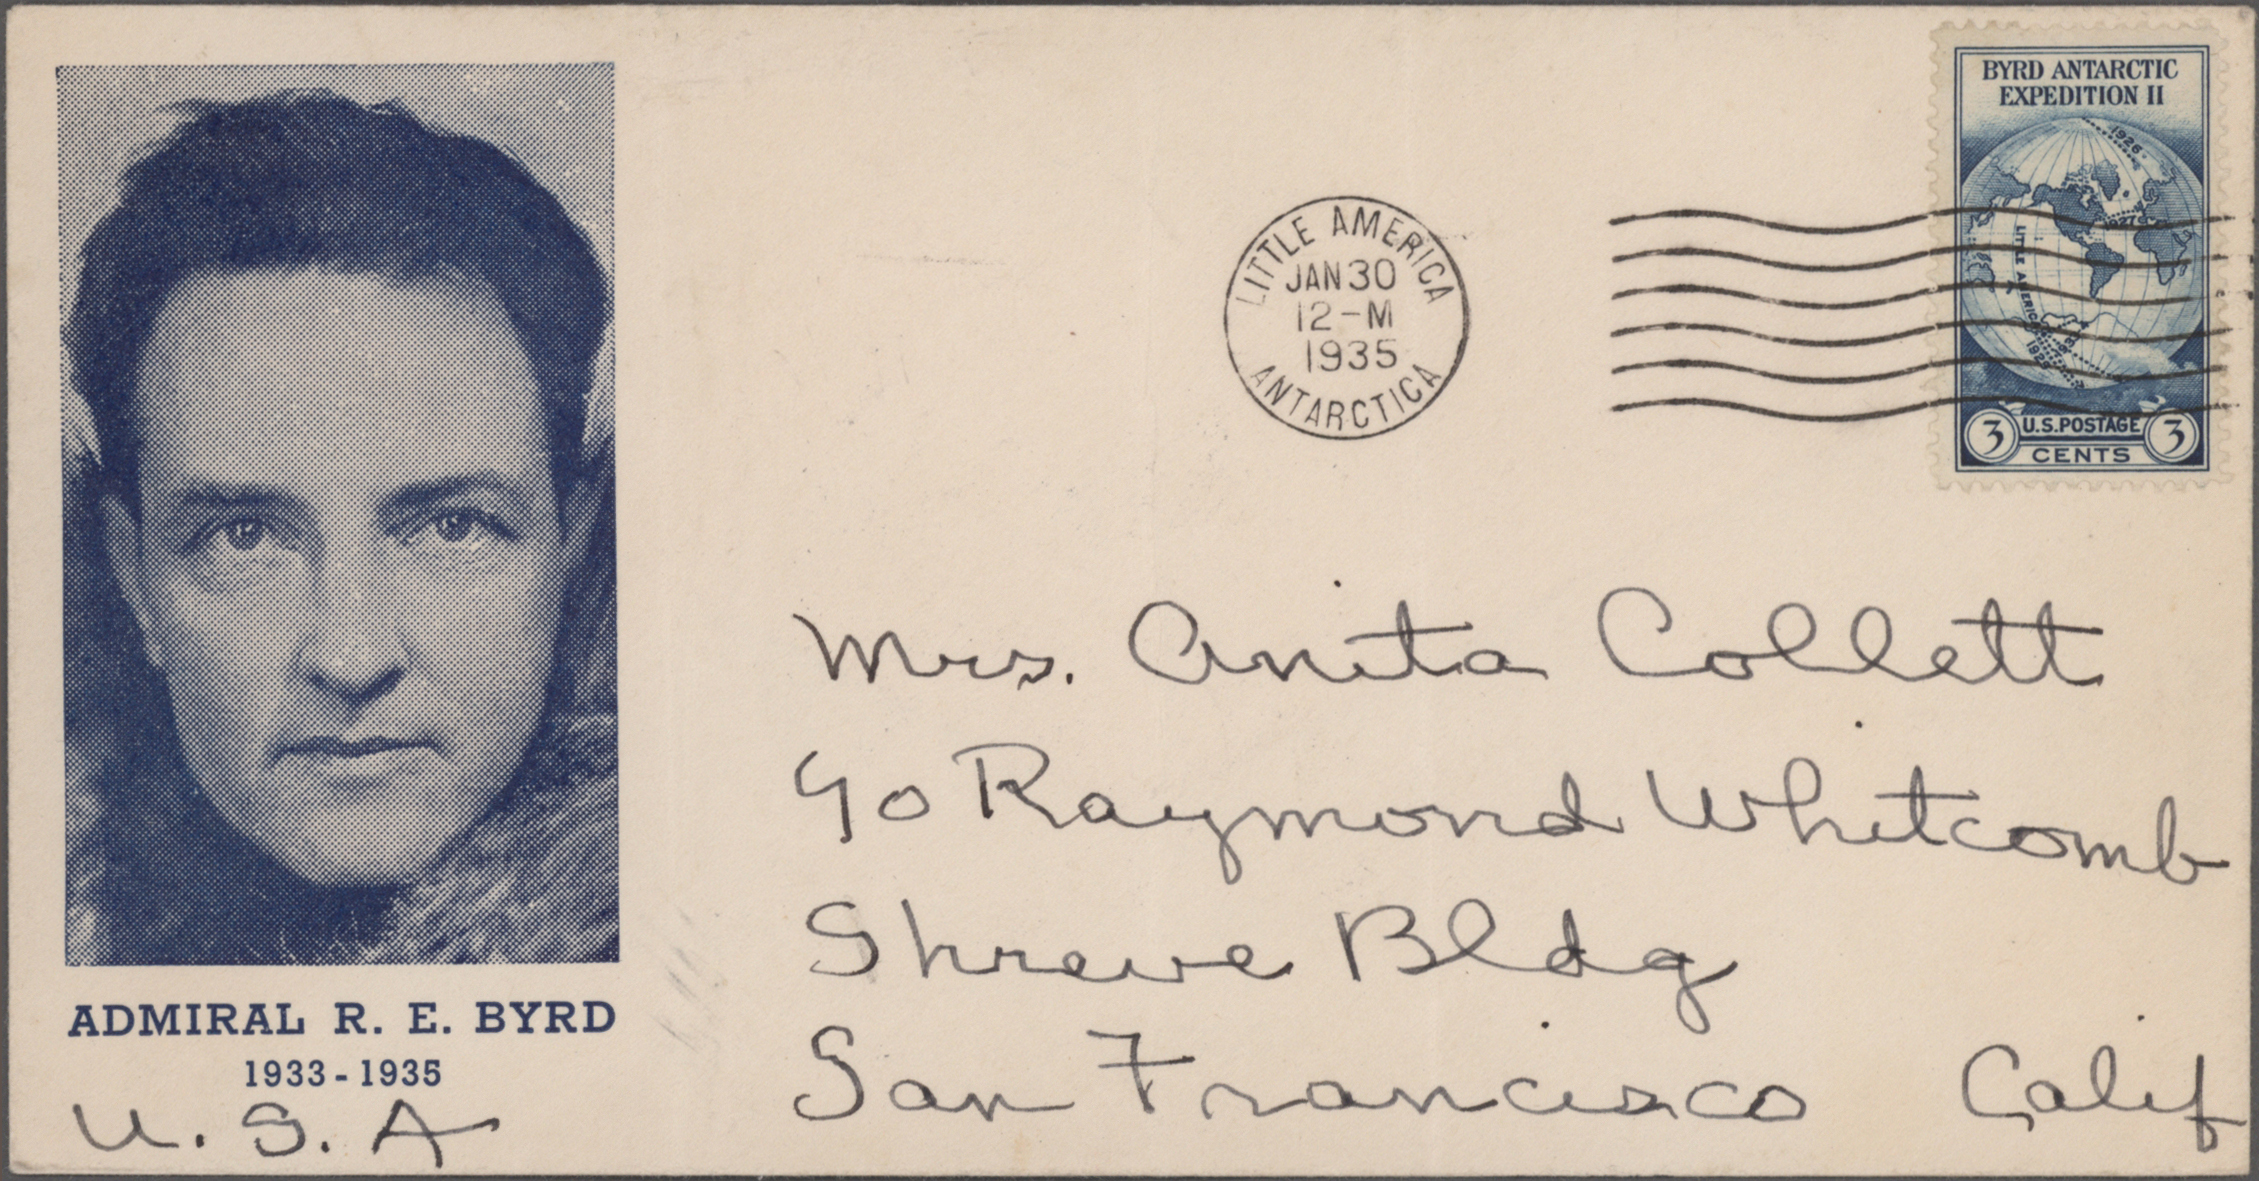 BYRD ANTARCTIC
EXPEDITION II
1926
1927
LITTLE AMERICA
1929
U.S. POSTAGE
3 3
CENTS
LITTLE AMERICA
JAN 30
12-M
1935
ANTARCTICA
Mrs. Anita Collett
c/o Raymond Whitcomb
Shreve Bldg
San Francisco Calif
ADMIRAL R. E. BYRD
1933-1935
U.S.A